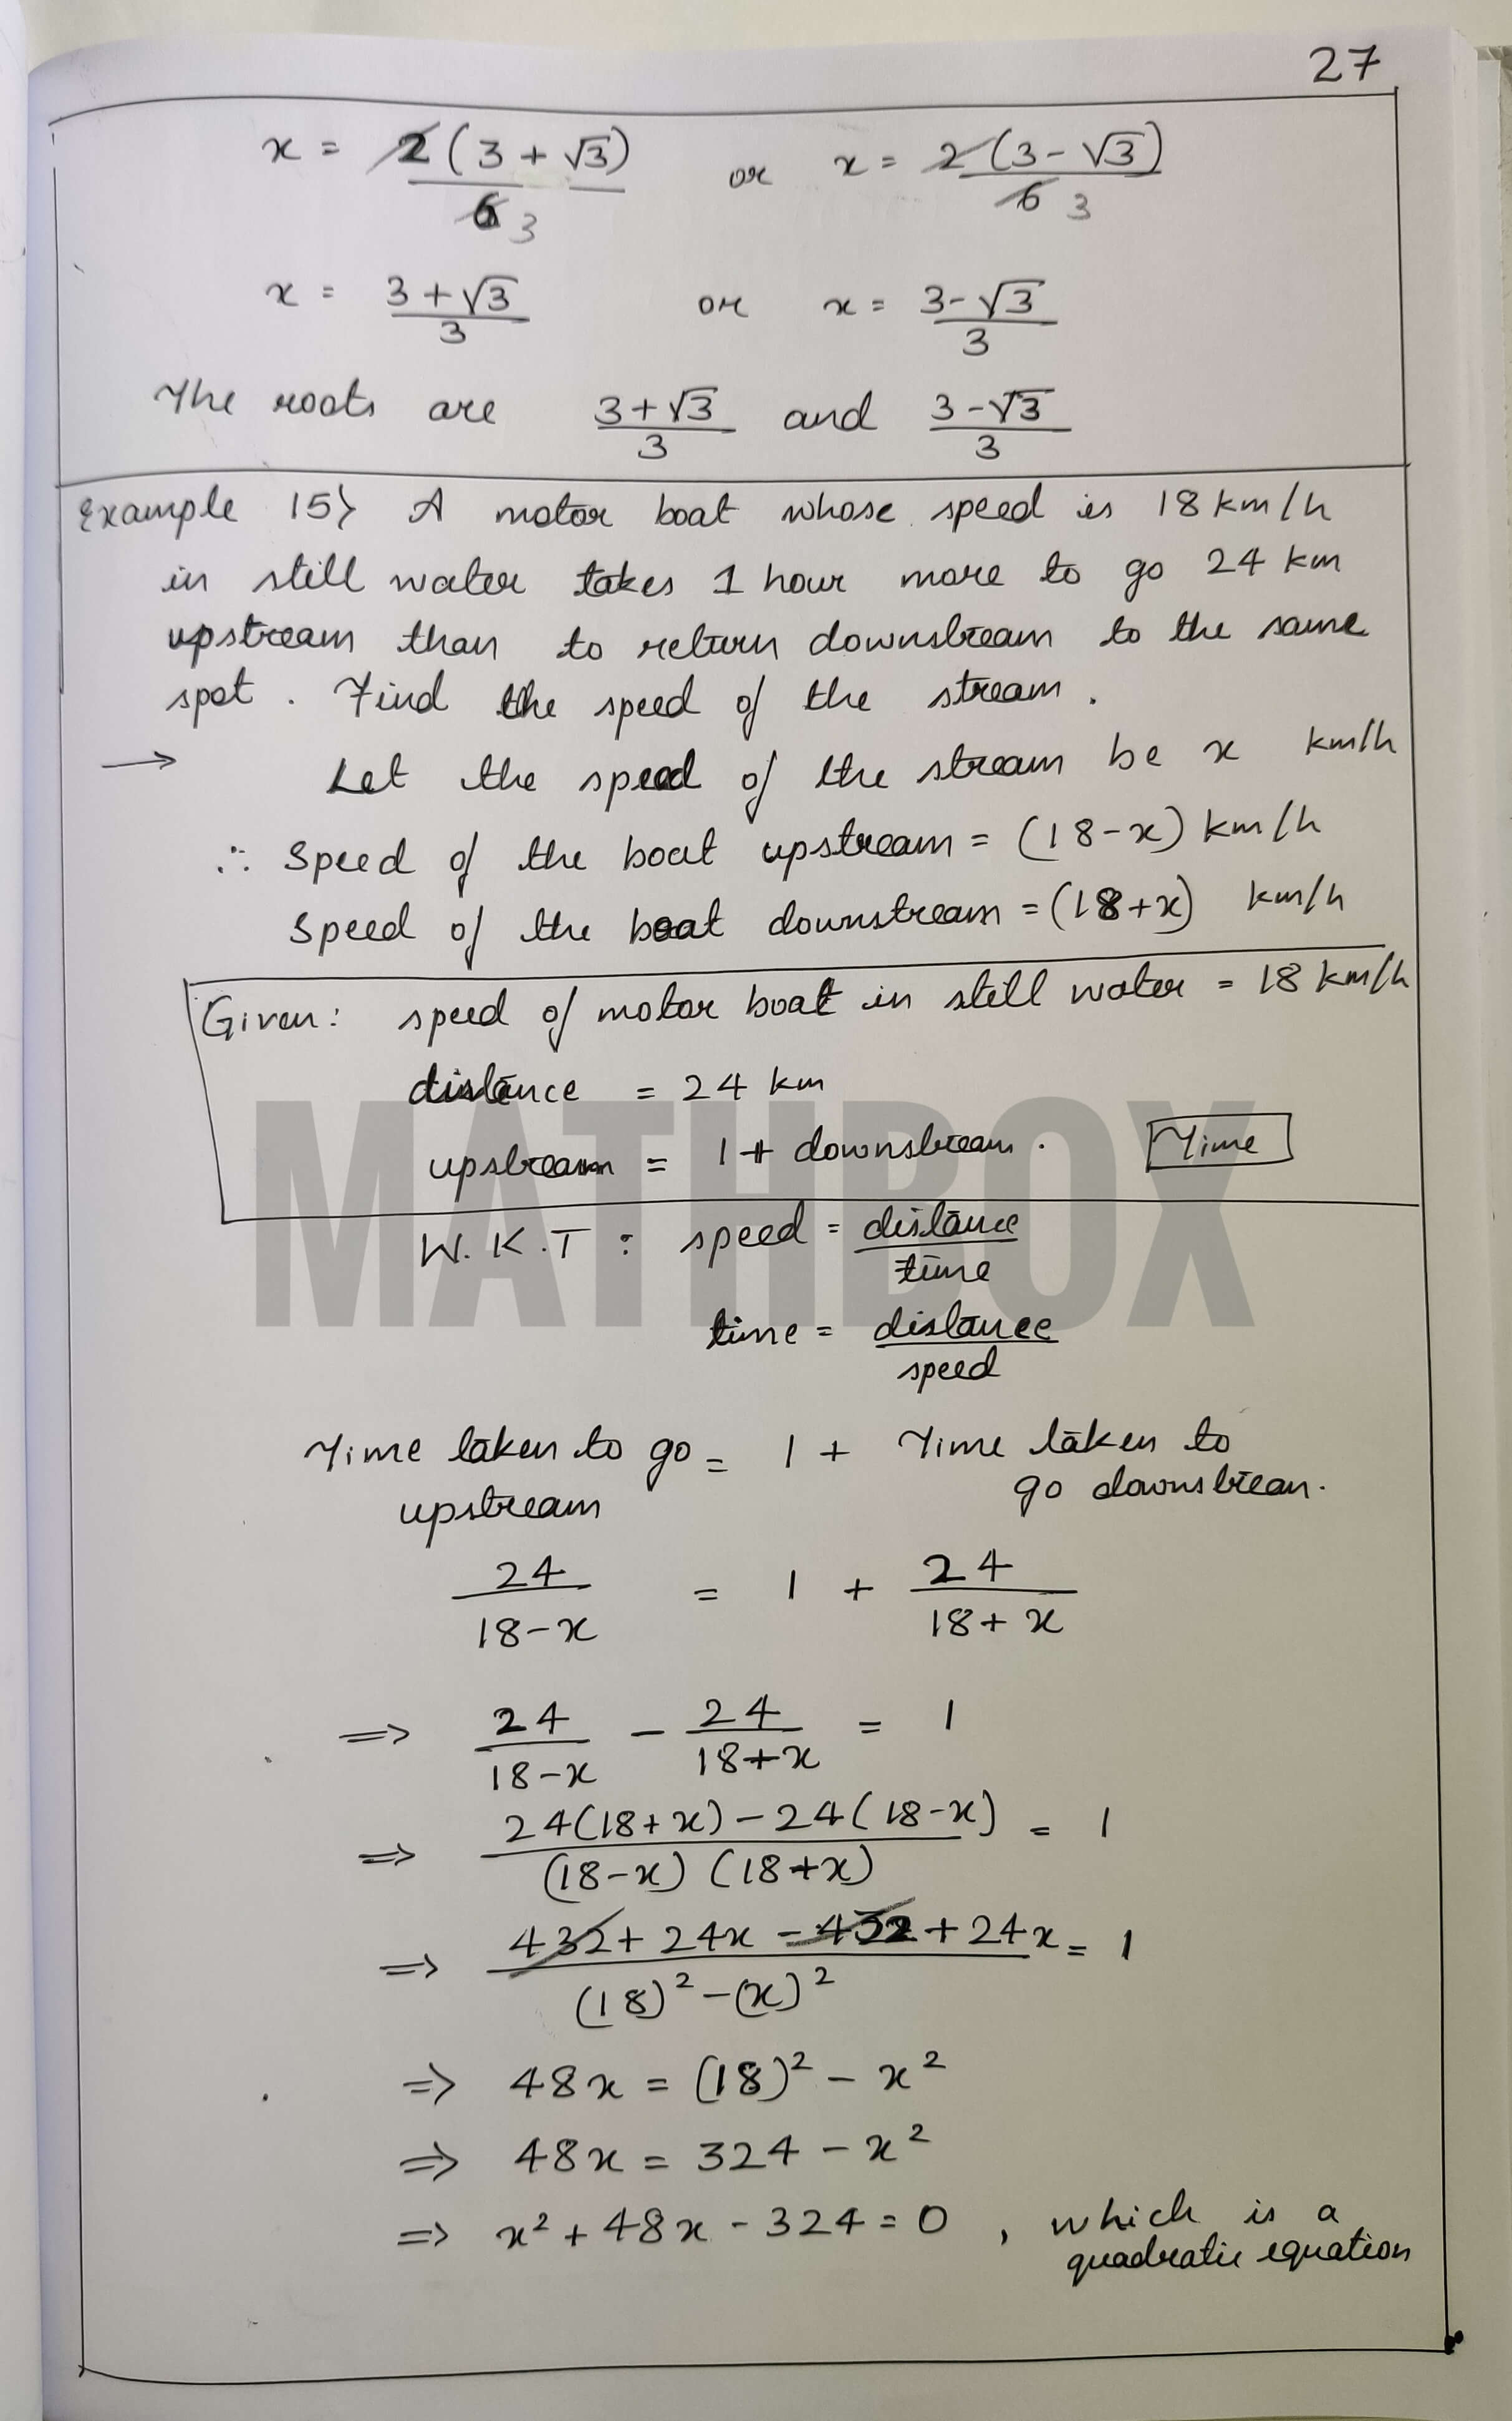 27
x = 2(3 + √3)/6 3 or x = 2(3 - √3)/6 3
x = 3 + √3/3 or x = 3 - √3/3
The roots are 3 + √3/3 and 3 - √3/3
Example 15} A motor boat whose speed is 18 km/h
in still water takes 1 hour more to go 24 km
upstream than to return downstream to the same
spot. Find the speed of the stream.
→ Let the speed of the stream be x km/h
∴ Speed of the boat upstream = (18 - x) km/h
Speed of the boat downstream = (18 + x) km/h
Given: speed of motor boat in still water = 18 km/h
distance = 24 km
upstream = 1 + downstream. Time
MATHBOX
W.K.T : speed = distance/time
time = distance/speed
Time taken to go = 1 + Time taken to
upstream go downstream.
24/18 - x = 1 + 24/18 + x
⇒ 24/18 - x - 24/18 + x = 1
⇒ 24(18 + x) - 24(18 - x)/(18 - x)(18 + x) = 1
⇒ 432 + 24x - 432 + 24x/(18)² - (x)² = 1
⇒ 48x = (18)² - x²
⇒ 48x = 324 - x²
⇒ x² + 48x - 324 = 0 , which is a
quadratic equation